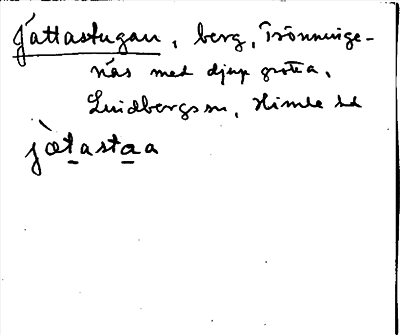 Jättastugan, berg, Trönninge-
näs med djup grotta,
Lindbergs sn, Himle hd
jæ̀tastaa